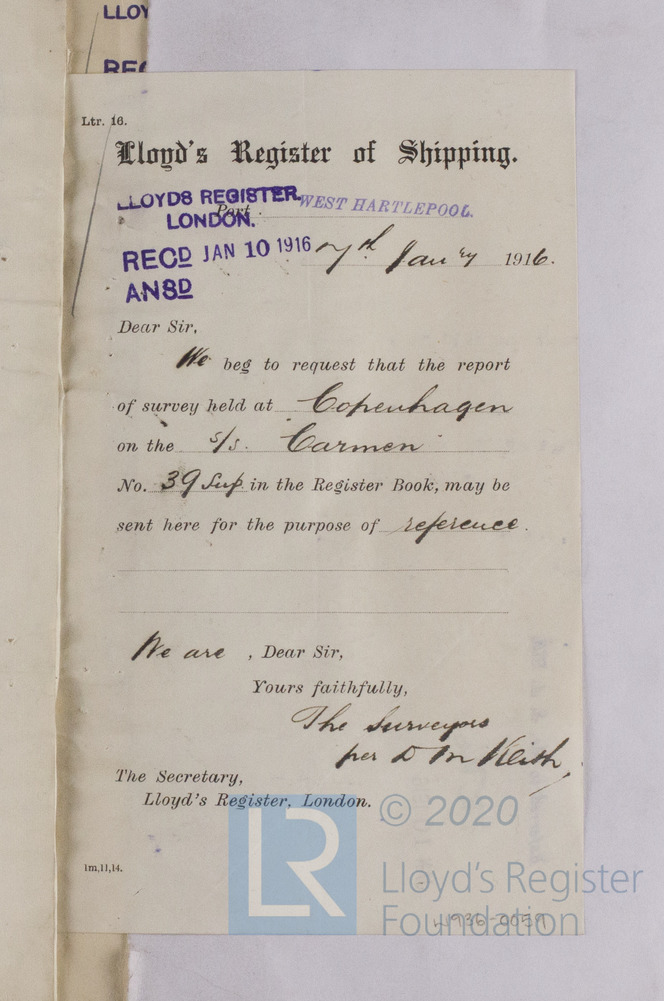 LLOY
REC
Ltr. 16.
Lloyd's Register of Shipping.
LLOYDS REGISTER.
LONDON.
Port WEST HARTLEPOOL.
RECD JAN 10 1916
ANSD
7th Jan'y 1916.
Dear Sir,
We beg to request that the report
of survey held at Copenhagen
on the s/s. Carmen
No. 39 Sup in the Register Book, may be
sent here for the purpose of reference.
We are, Dear Sir,
Yours faithfully,
The Surveyors
per D M Keith
The Secretary,
Lloyd's Register, London.
1m,11,14.
LR
© 2020
Lloyd's Register
Foundation